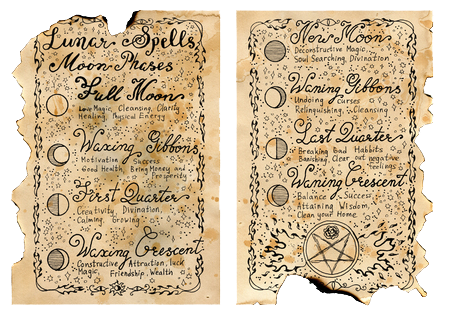 Lunar Spells
Moon Phases
Full Moon
Love Magic, Cleansing, Clarity
Healing, Physical Energy
Waxing Gibbons
Motivation Success
Good Health Bring Money and
Prosperity
First Quarter
Creativity Divination,
Calming, Growing
Waxing Crescent
Constructive Attraction, luck
Magic, Friendship, Wealth
New Moon
Deconstructive Magic,
Soul Searching, Divination
Waning Gibbons
Undoing Curses
Relinguishing, Cleansing
Last Quarter
Breaking Bad Habbits
Banishing, Clear out negative
feelings
Waning Crescent
Balance Success
Attaining Wisdom,
Clean your Home